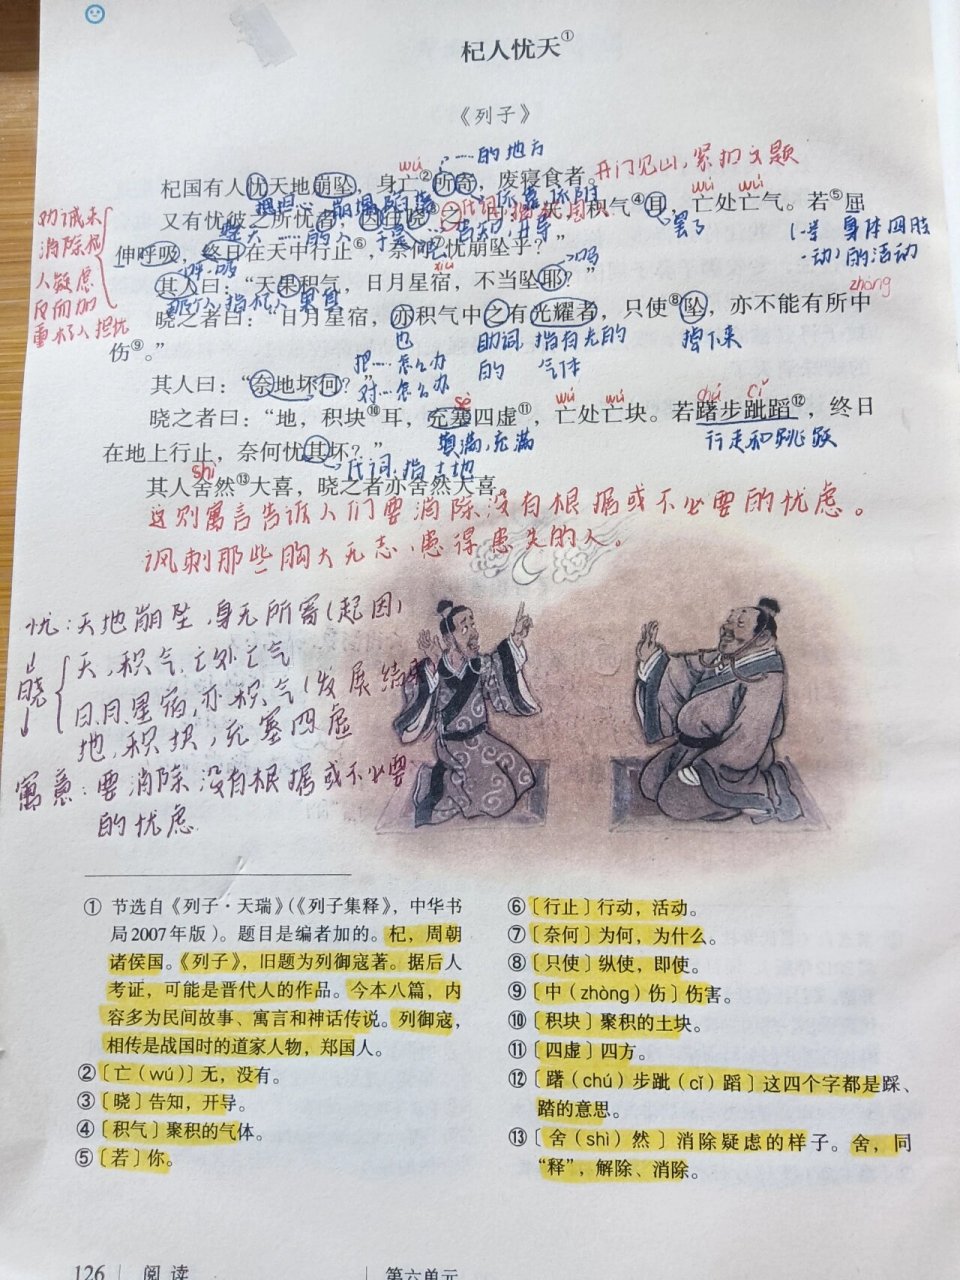 杞人忧天①
《列子》
……的地方
wú
开门见山，紧扣文题
杞国有人忧天地崩坠，身亡②所寄，废寝食者。
wú wú
又有忧彼之所忧者，因往晓③之，积气④耳，亡处亡气。若⑤屈
罢了
身体四肢
伸呼吸，终日在天中行止⑥，奈何⑦忧崩坠乎？”
的活动
呼吸
xiù
其人曰：“天果积气，日月星宿，不当坠耶？”
zhòng
晓之者曰：“日月星宿，亦积气中之有光耀者，只使⑧坠，亦不能有所中
也
助词
的
指有光的
气体
掉下来
伤⑨。”
把……怎么办
对……怎么办
其人曰：“奈地坏何？”
sè
wú wú
chú cǐ
晓之者曰：“地，积块⑩耳，充塞四虚⑪，亡处亡块。若躇步跐蹈⑫，终日
填满，充满
行走和跳跃
在地上行止，奈何忧其坏？”
代词，指土地
shì
其人舍然⑬大喜，晓之者亦舍然大喜。
这则寓言告诉人们要消除没有根据或不必要的忧虑。
讽刺那些胸大无志，患得患失的人。
劝诫未
消除杞
人疑虑
反而加
担忧
忧：天地崩坠，身无所寄（起因）
晓
天，积气，亡处亡气
日月星宿，亦积气（发展结果
地，积块，充塞四虚
寓意：要消除没有根据或不必要
的忧虑
① 节选自《列子·天瑞》（《列子集释》，中华书
局2007年版）。题目是编者加的。杞，周朝
诸侯国。《列子》，旧题为列御寇著。据后人
考证，可能是晋代人的作品。今本八篇，内
容多为民间故事、寓言和神话传说。列御寇，
相传是战国时的道家人物，郑国人。
②〔亡（wú）〕无，没有。
③〔晓〕告知，开导。
④〔积气〕聚积的气体。
⑤〔若〕你。
⑥〔行止〕行动，活动。
⑦〔奈何〕为何，为什么。
⑧〔只使〕纵使，即使。
⑨〔中（zhòng）伤〕伤害。
⑩〔积块〕聚积的土块。
⑪〔四虚〕四方。
⑫〔躇（chú）步跐（cǐ）蹈〕这四个字都是踩、
踏的意思。
⑬〔舍（shì）然〕消除疑虑的样子。舍，同
“释”，解除、消除。
126 阅读
第六单元